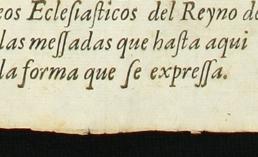 eos Eclesiaſticos del Reyno de
las meſſadas que haſta aqui
la forma que ſe expreſſa.